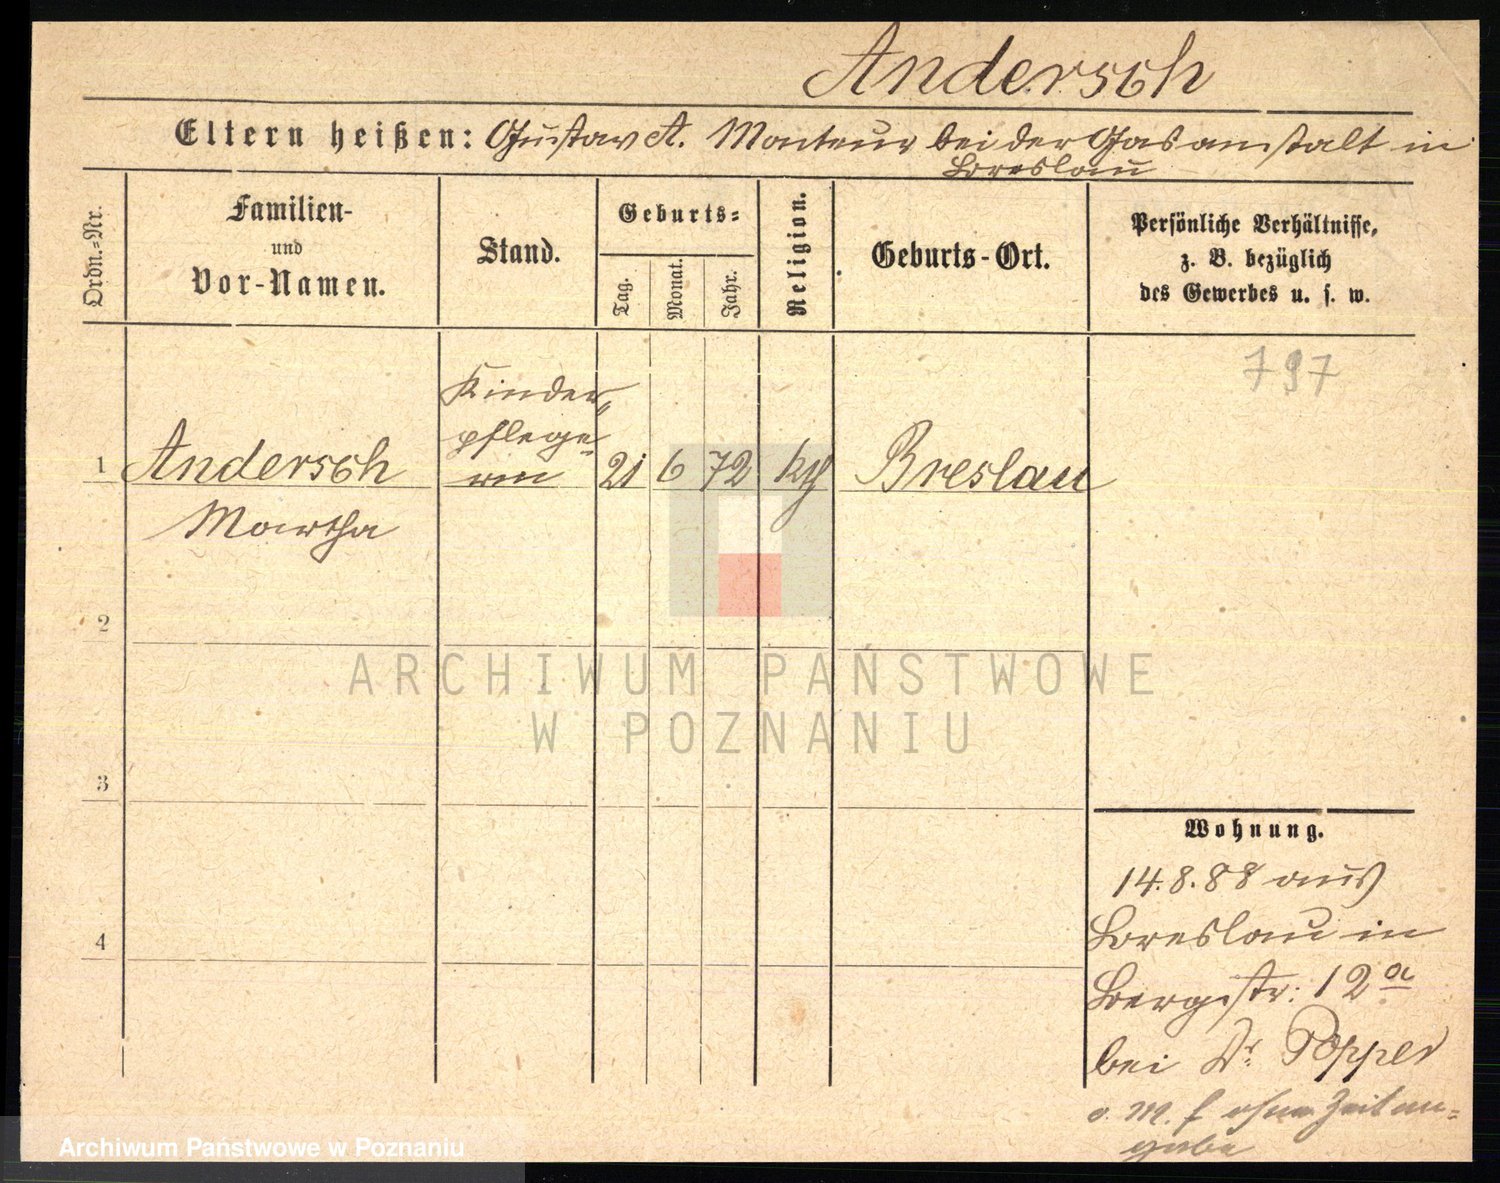 Andersch
Eltern heißen: Gustav A. Monteur bei der Gasanstalt in
Breslau
Ordn.-Nr.
Familien-
und
Vor-Namen.
Stand.
Geburts-
Tag.
Monat.
Jahr.
Religion.
Geburts-Ort.
Persönliche Verhältnisse,
z. B. bezüglich
des Gewerbes u. s. w.
797
1
Andersch
Martha
Kinder-
pflege-
rin
21 6 72 kth Breslau
2
3
4
Wohnung.
14.8.88 aus
Breslau in
Bergstr: 12a
bei Dr. Popper
o. M. f ohne Zeitan-
gabe
ARCHIWUM PAŃSTWOWE
W POZNANIU
Archiwum Państwowe w Poznaniu